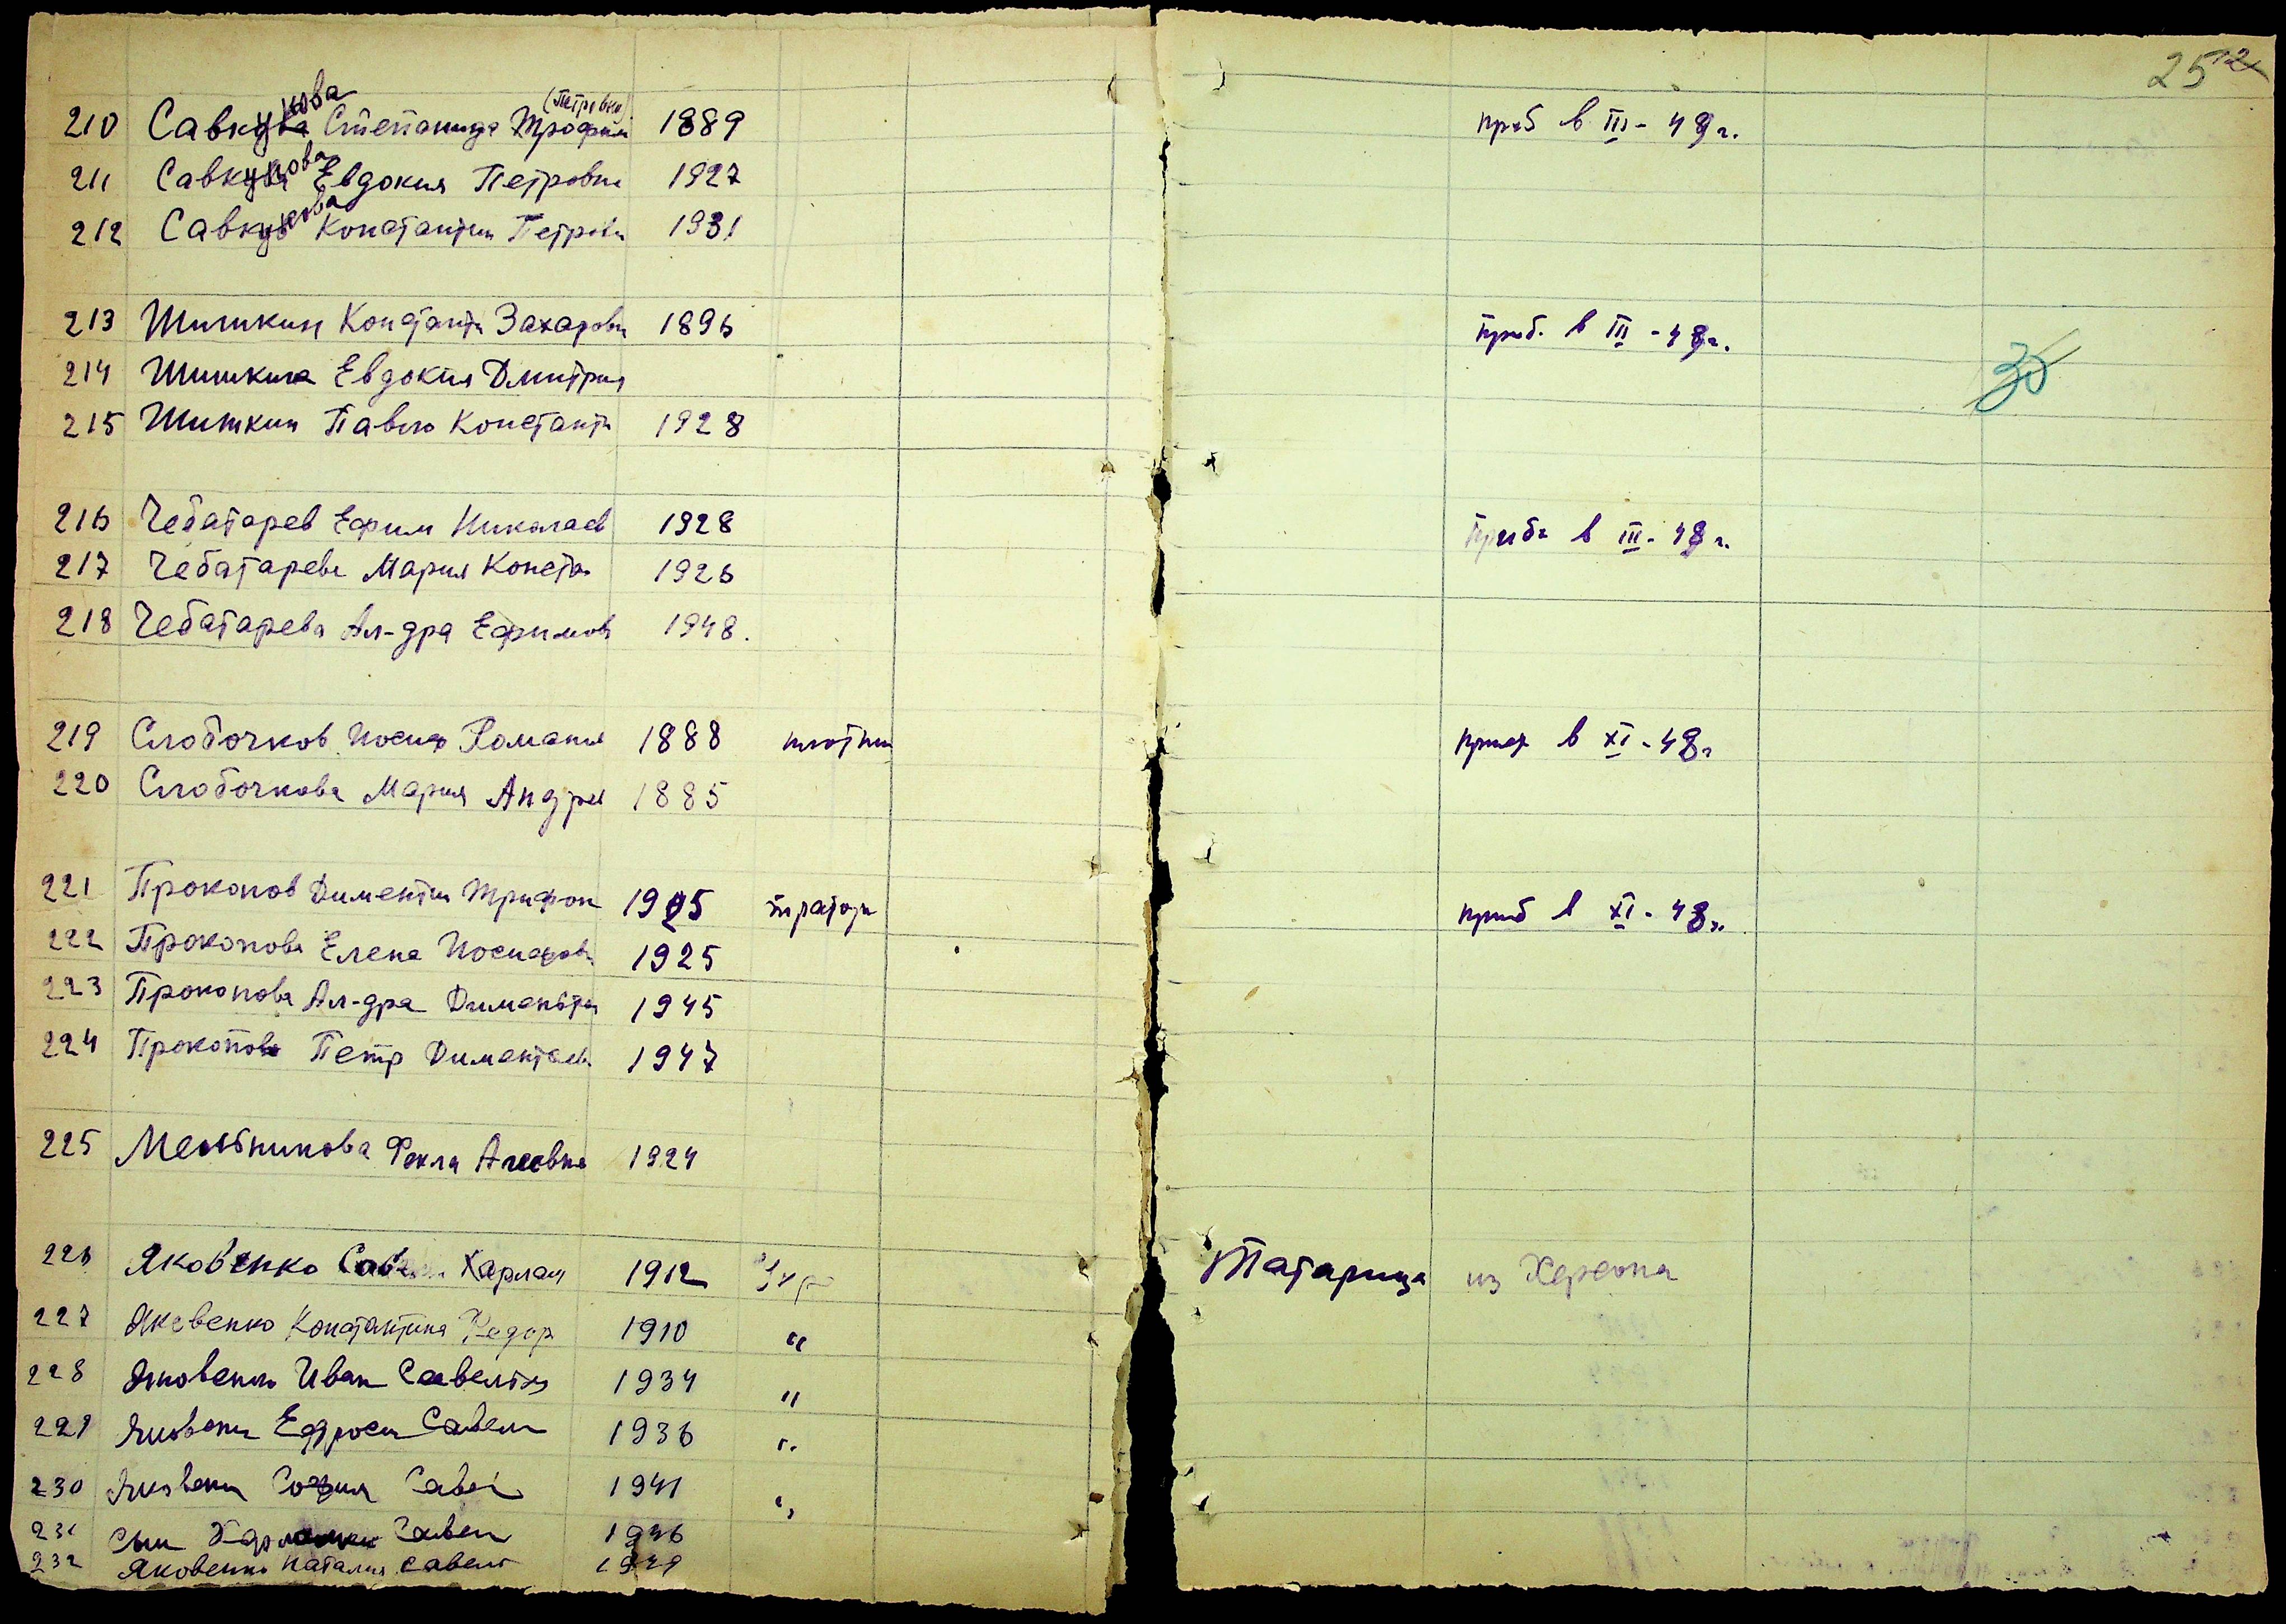 25
210 Савкукова Степанида Трофим (Петровна) 1889 приб в III - 48 г.
211 Савкукова Евдокия Петровна 1927
212 Савкуков Константин Петрови 1931
213 Шишкин Констант Захарови 1896 приб. в III - 48 г.
30
214 Шишкина Евдокия Дмитрия
215 Шишкин Павло Констант 1928
216 Чебатарев Ефим Николаев 1928 приб в III - 48 г.
217 Чебатарева Мария Конста 1926
218 Чебатарева Ал-дра Ефимов 1948.
219 Слободчков Иосиф Романов 1888 плотни в XI - 48 г
220 Слобочкова Мария Андре 1885
221 Прокопов Диментий Трифон 1905 приб в XI - 48 г.
222 Прокопова Елена Иосифов 1925
223 Прокопова Ал-дра Димент 1945
224 Прокопов Петр Диментьев 1947
225 Мельникова Фекла Агеевна 1924
226 Яковенко Саве Харлам 1912 Укр Татарица из Херсона
227 Яковенко Константина Федор 1910 "
228 Яковенко Иван Савельев 1934 "
229 Яковенк Ефроси Савели 1936 "
230 Яковенк София Савел 1941 "
231 Сын Савел 1946
232 Яковенко Наталия Савел 1949